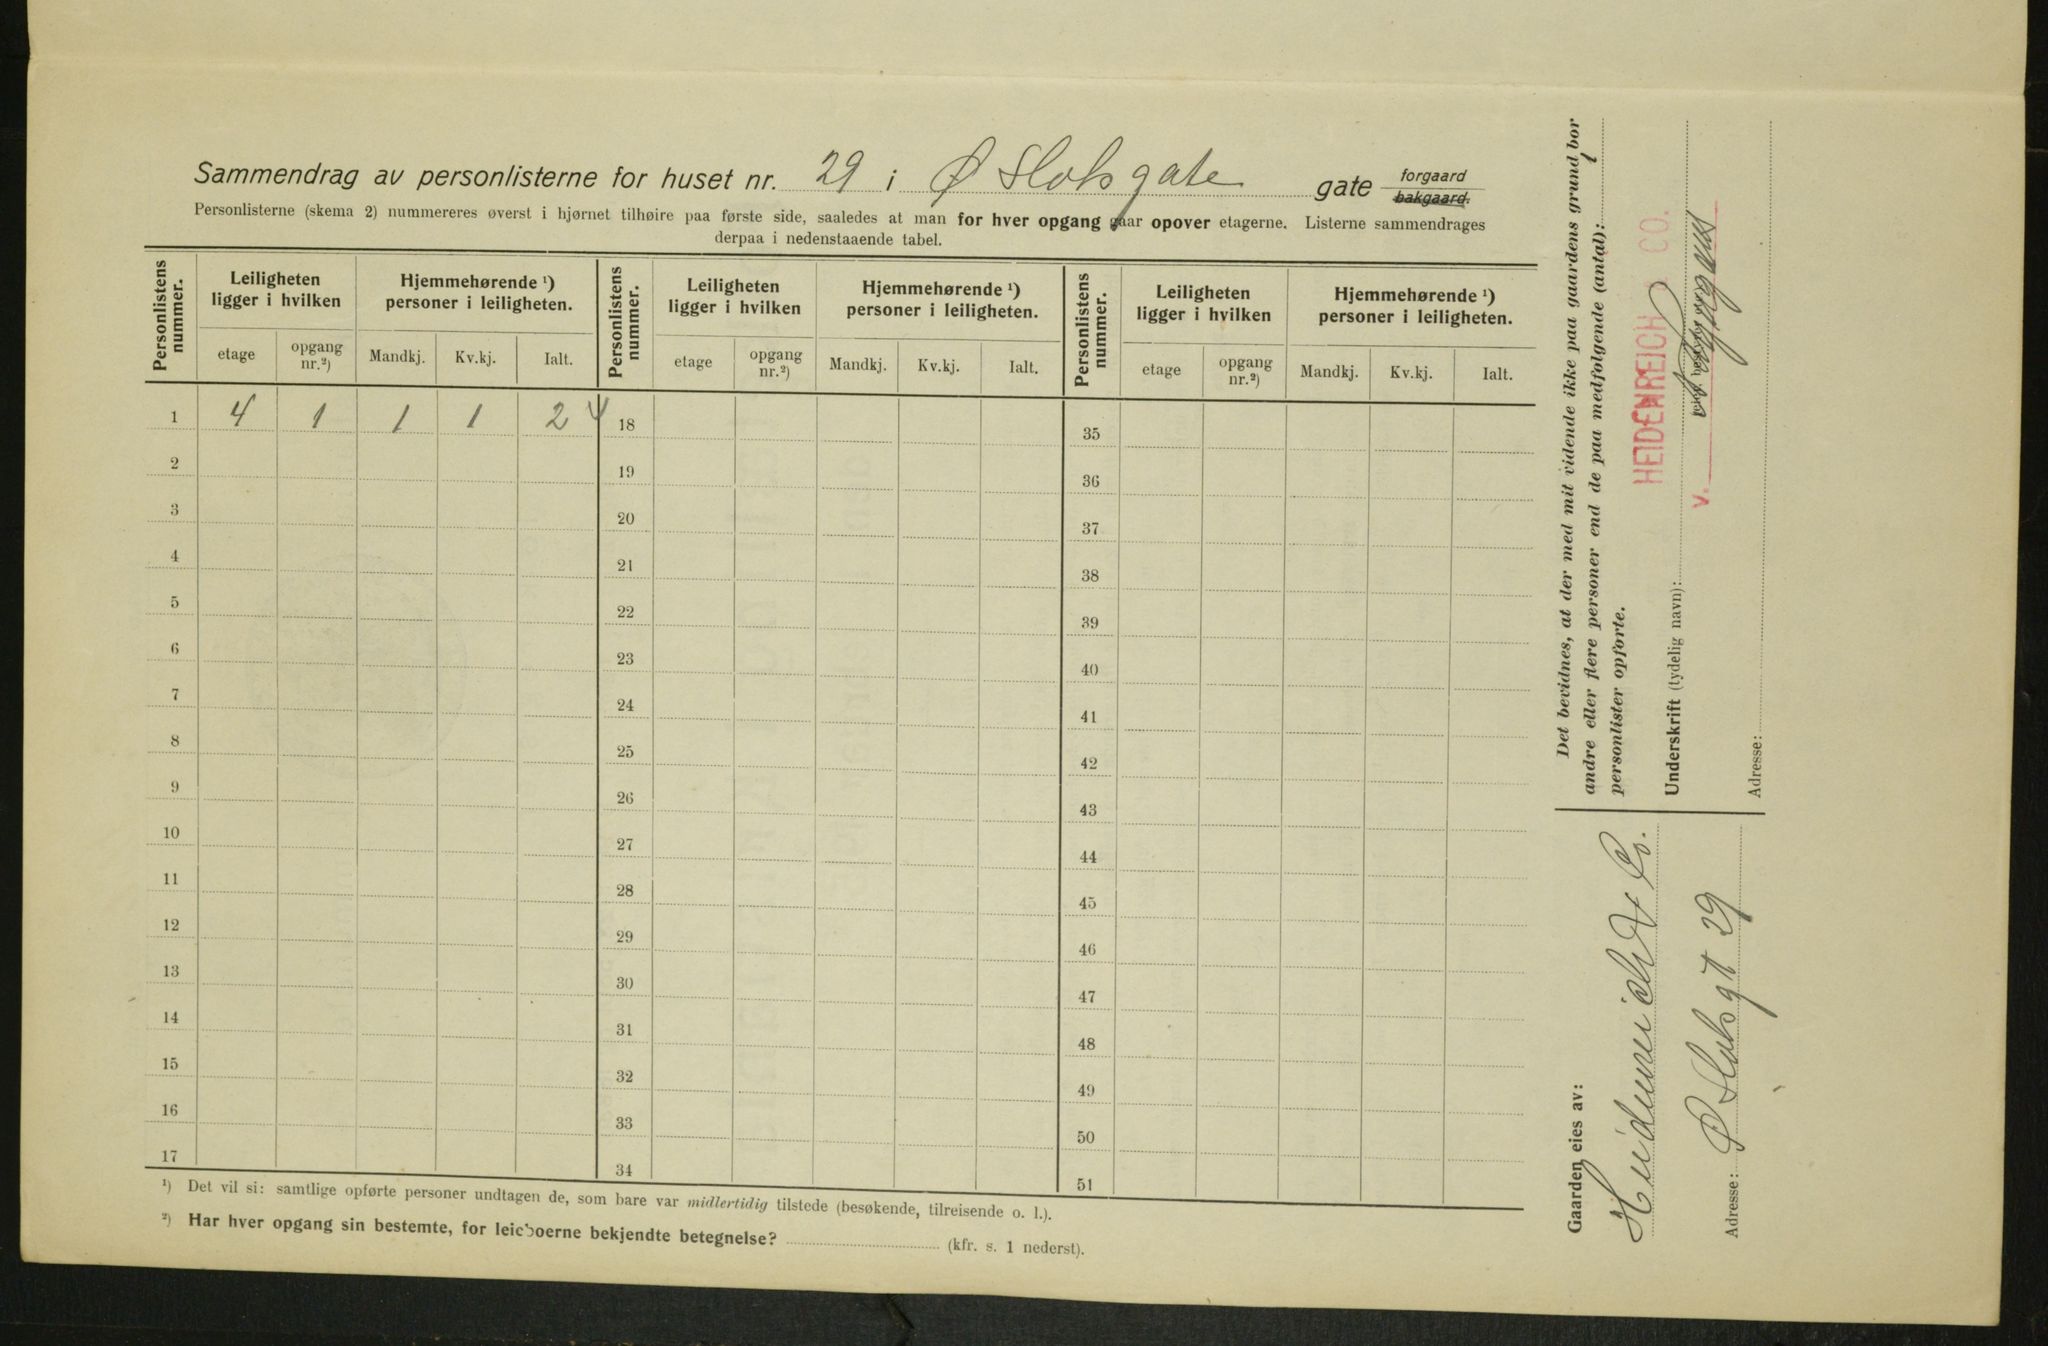 Sammendrag av personlisterne for huset nr. 29 i Ø Slotsgate gate forgaard bakgaard.
Personlisterne (skema 2) nummereres øverst i hjørnet tilhøire paa første side, saaledes at man for hver opgang gaar opover etagerne. Listerne sammendrages
derpaa i nedenstaaende tabel.
Personlistens nummer. Leiligheten ligger i hvilken Hjemmehørende ¹) personer i leiligheten. Personlistens nummer. Leiligheten ligger i hvilken Hjemmehørende ¹) personer i leiligheten. Personlistens nummer. Leiligheten ligger i hvilken Hjemmehørende ¹) personer i leiligheten.
etage opgang nr.²) Mandkj. Kv.kj. Ialt. etage opgang nr.²) Mandkj. Kv.kj. Ialt. etage opgang nr.²) Mandkj. Kv.kj. Ialt.
1 4 1 1 1 2 18 35
2 19 36
3 20 37
4 21 38
5 22 39
6 23 40
7 24 41
8 25 42
9 26 43
10 27 44
11 28 45
12 29 46
13 30 47
14 31 48
15 32 49
16 33 50
17 34 51
¹) Det vil si: samtlige opførte personer undtagen de, som bare var midlertidig tilstede (besøkende, tilreisende o. l.).
²) Har hver opgang sin bestemte, for leieboerne bekjendte betegnelse? (kfr. s. 1 nederst).
Det bevidnes, at der med mit vidende ikke paa gaardens grund bor
andre eller flere personer end de paa medfølgende (antal): 1
personlister opførte.
HEIDENREICH & CO.
Underskrift (tydelig navn):
v.
Adresse:
Gaarden eies av:
Heidenreich & Co.
Adresse: Ø Slots gt 29